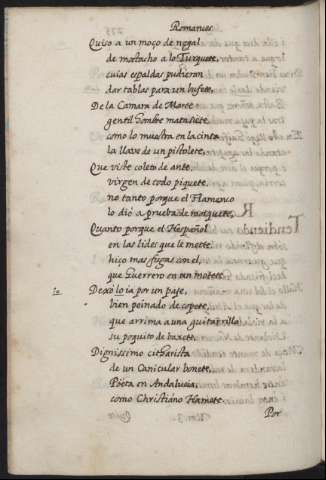 Romances
Quiso a un moço de nogal
de mostacho a lo Turquete,
cuias espaldas pudieran
dar tablas para un bufete,
De la Camara de Marte
gentil hombre matasiete
como lo muestra en la cinta
la llaue de un pistolete,
Que viste coleto de ante
virgen de todo piquete
no tanto porque el Flamenco
lo dió a prueba de mosquete,
Quanto porque el Hespañol
en las lides que le mete
hiço mas fugas con el,
que Guerrero en un motete
Dexó lo ia por un paje,
bien peinado de copete,
que arrima a una guitarrilla
su poquito de baxete.
Dignissimo citharista
de un Canicular bonete,
Pöeta en Andalucia,
como Christiano Hamete
Por